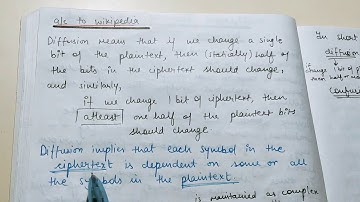 a/c to wikipedia
Diffusion means that if we change a single
bit of the plaintext, then (statically) half of
the bits in the ciphertext should change,
and similarly,
if we change 1 bit of ciphertext, then
atleast one half of the plaintext bits
should change
Diffusion implies that each symbol in the
ciphertext is dependent on some or all
the symbols in the plaintext.
In short
diffusion
if
change
1 bit of
confu
is maintained as complex